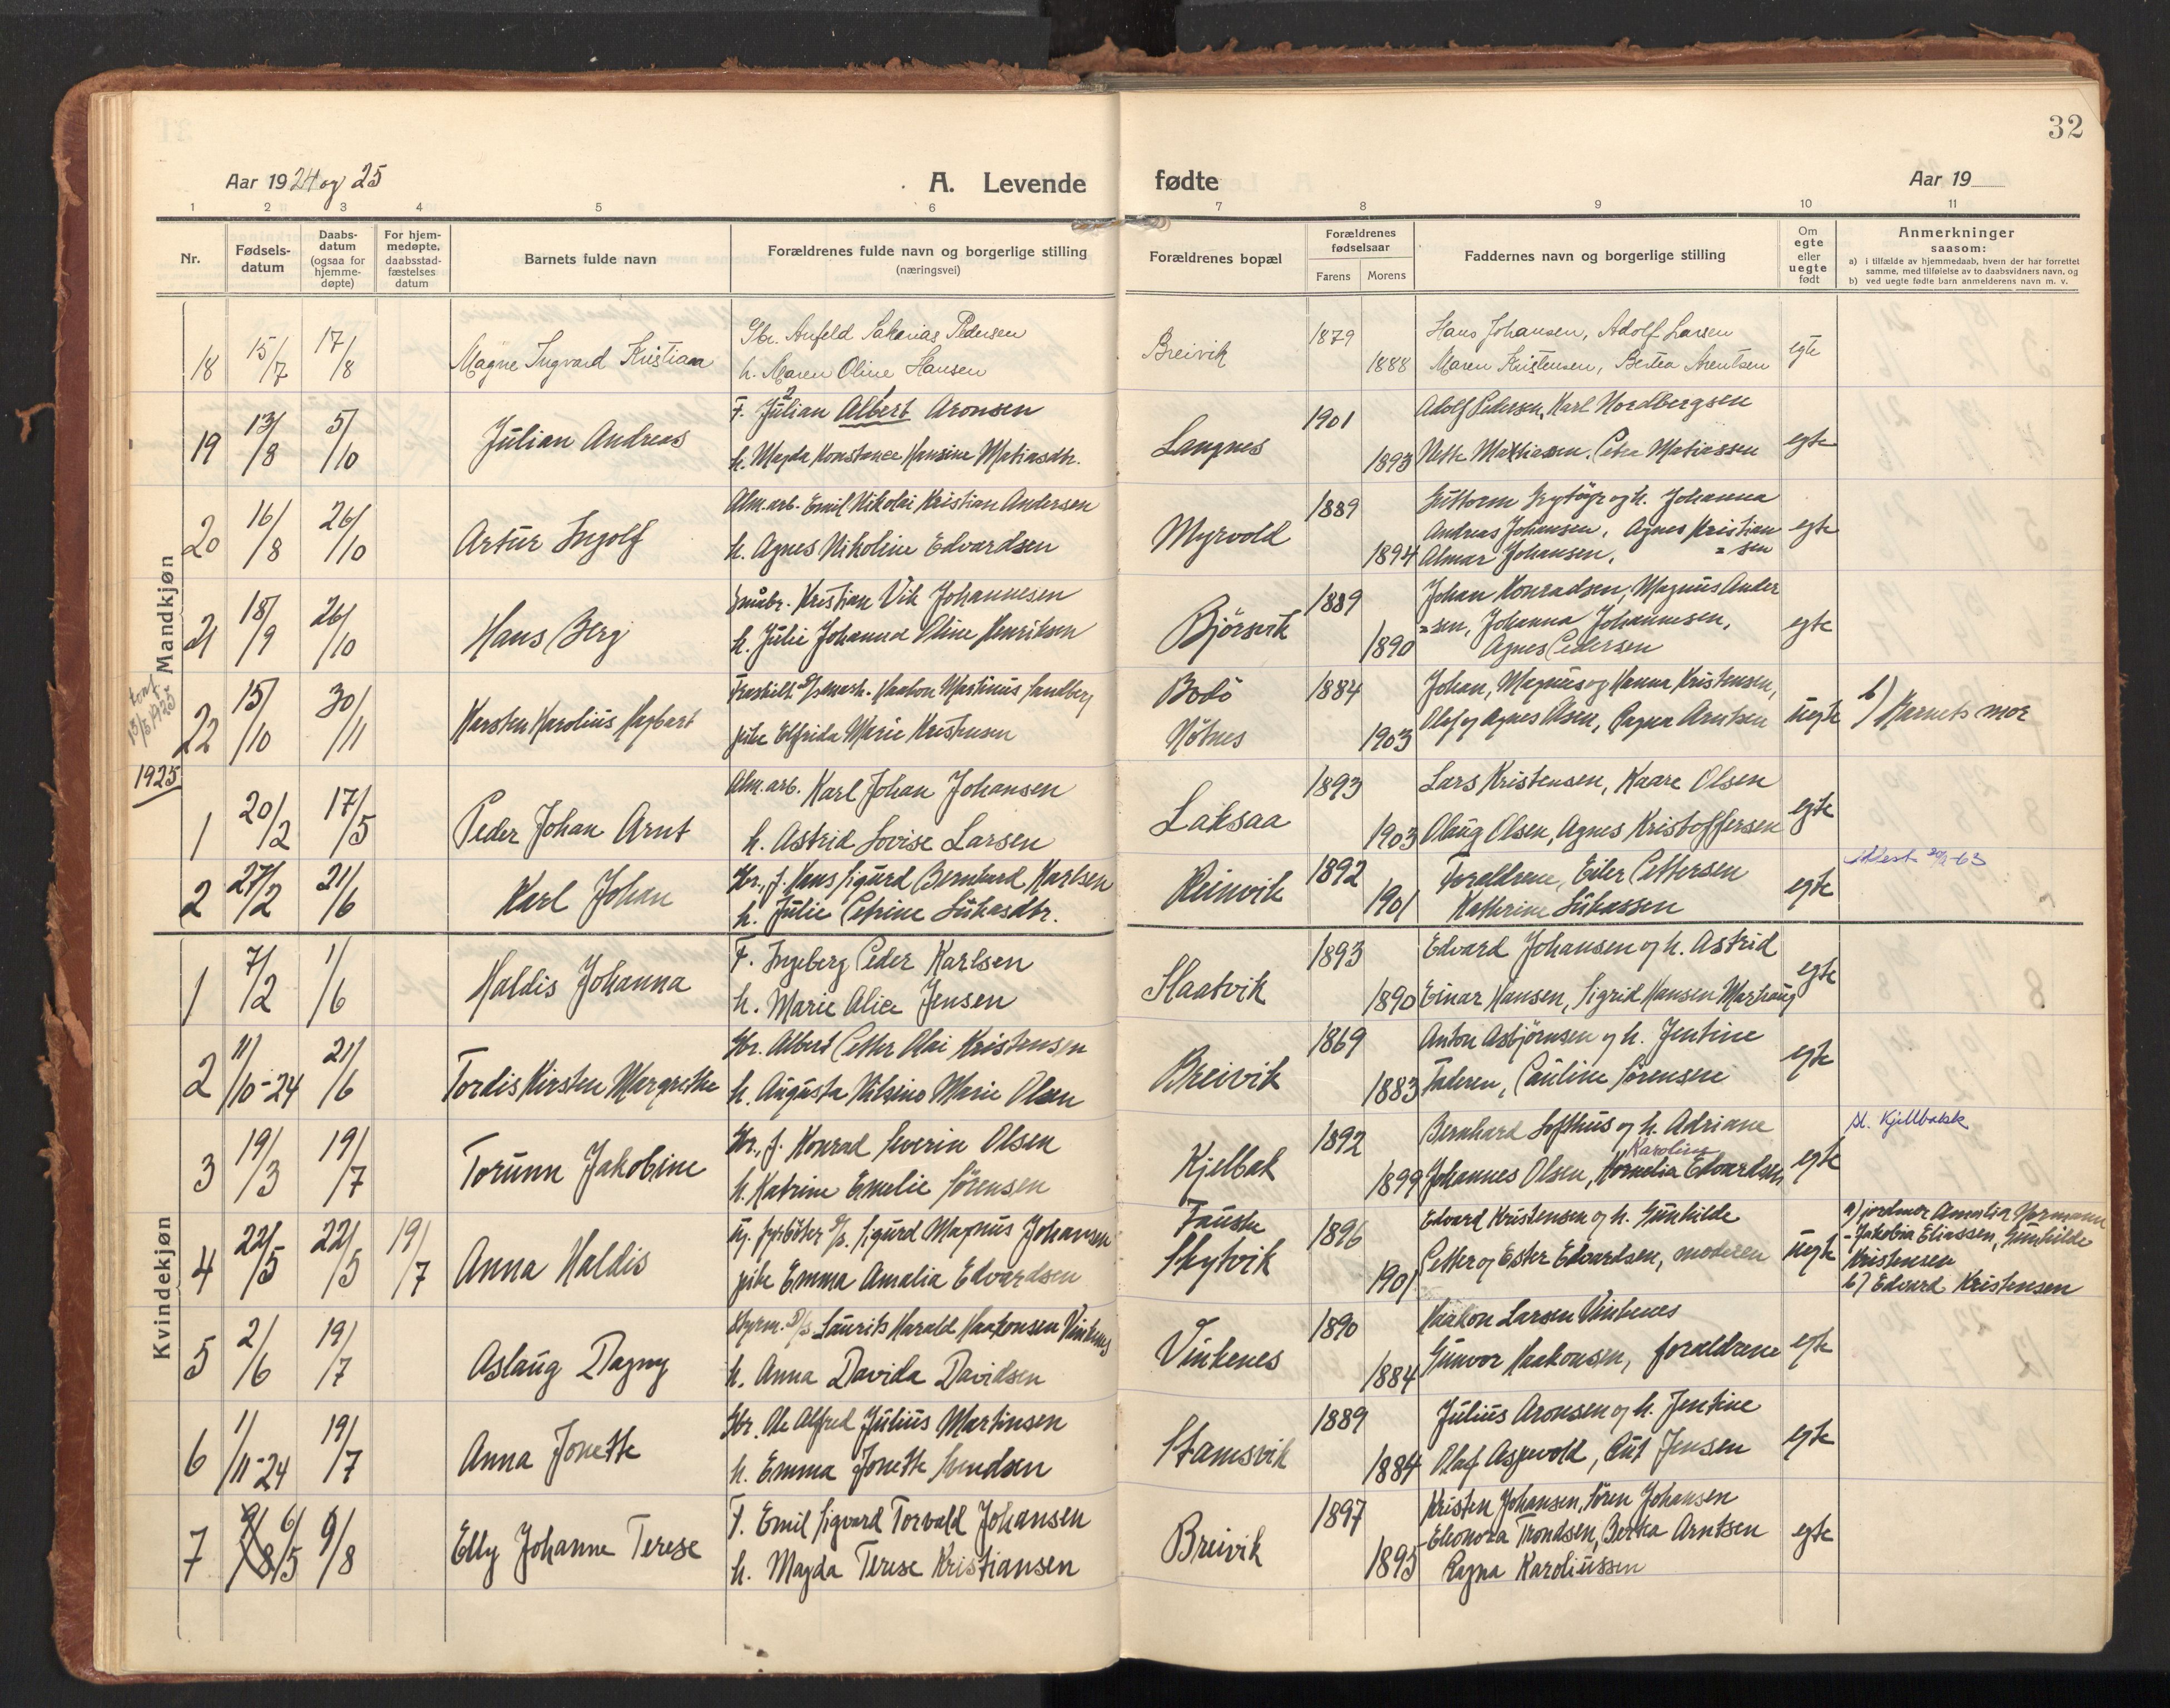 32
Aar 1924 og 25
A. Levende fødte
Aar 19
1 2 3 4 5 6 7 8 9 10 11
Nr.
Fødsels-datum
Daabs-datum (ogsaa for hjemme-døpte)
For hjem-medøpte, daabsstad-fæstelses datum
Barnets fulde navn
Forældrenes fulde navn og borgerlige stilling (næringsvei)
Forældrenes bopæl
Forældrenes fødselsaar
Farens Morens
Faddernes navn og borgerlige stilling
Om egte eller uegte født
Anmerkninger saasom:
a) i tilfælde av hjemmedaab, hvem der har forrettet samme, med tilføielse av to daabsvidners navn, og
b) ved uegte fødte barn anmelderens navn m. v.
Mandkjøn
18 15/7 17/8 Magne Ingvard Kristian
Gbr. Anfeld Sakarias Pedersen
h. Maren Oline Hansen
Breivik 1879 1888
Hans Johansen, Adolf Larsen
Maren Kristensen, Bertea Arentsen
egte
19 13/8 5/10 Julian Andreas
F. Julian Albert Aronsen
h. Magda Konstance Hansine Matiasdtr.
Langnes 1901 1893
Adolf Pedersen, Karl Nordbergsen
Nette Mathiasen, Petra Matiassen
egte
20 16/8 26/10 Artur Ingolf
Alm. arb. Emil Nikolai Kristian Andersen
h. Agnes Nikoline Edvardsen
Myrvold 1889 1894
Guttorm og h. Johanna
Andreas Johansen, Agnes Kristian
Almar Johansen, =sen
egte
21 18/9 26/10 Hans Berg
Småbr. Kristian Vik Johannesen
h. Julie Johanna Oline Henriksen
Bjørsvik 1889 1890
Johan Konradsen, Magnus Ander
=sen, Johanna Johannesen,
Agnes Pedersen
egte
22 15/10 30/11 Karsten Karolius Hagbart
Fraskilt Haakon Martinus Sandberg
pike Elfrida Marie Kristensen
Bodö
Nötnes
1884 1903
Johan, Magnus og Hanna Kristensen,
Olaf og Agnes Olsen, Ragna Arntsen
uegte
b) Barnets mor
1925
1 20/2 17/5 Peder Johan Arnt
Alm. arb. Karl Johan Johansen
h. Astrid Lovise Larsen
Laksaa 1893 1903
Lars Kristensen, Kaare Olsen
Olaug Olsen, Agnes Kristoffersen
egte
2 27/2 21/6 Karl Johan
Gbr., f. Hans Sigurd Bernhard Karlsen
h. Julie Petrine Lukasdtr.
Reinvik 1892 1901
Foreldrene, Eiler Pettersen
Kathrine Lukassen
egte
Kvindekjøn
1 7/2 1/6 Haldis Johanna
F. Ingeberg Peder Karlsen
h. Marie Alice Jensen
Slaatvik 1893 1890
Edvard Johansen og h. Astrid
Einar Hansen, Sigrid Hansen Marhaug
egte
2 11/10-24 21/6 Tordis Kirsten Margrethe
Gbr. Albert Petter Olai Kristensen
h. Augusta Nilsine Marie Olsen
Breivik 1869 1883
Anton Asbjørnsen og h. Jentine
Faderen, Pauline Sørensen
egte
3 19/3 19/7 Torunn Jakobine
Gbr., f. Konrad Severin Olsen
h. Katrine Emelie Sørensen
Kjelbak 1892 1899
Bernhard Lofthus og h. Adriane
Karoline
Johannes Olsen, Kornelia Edvardsen
egte
sl. Kjellbakk
4 22/5 22/5 19/7 Anna Haldis
Ug. fyrböter Sigurd Magnus Johansen
pike Emma Amalia Edvardsen
Fauske
Skytvik
1896 1901
Edvard Kristensen og h. Gunhilde
Petter og Ester Edvardsen, moderen
uegte
a) jordmor Amalia Normann
-Jakobia Eliassen, Gunhilde
Kristensen
b) Edvard Kristensen
5 2/6 19/7 Aslaug Dagny
Styrm. D/S Laurits Harald Haakonsen Vinkenes
h. Anna Davida Davidsen
Vinkenes 1890 1884
Haakon Larsen Vinkenes
Gunvor Haakonsen, foreldrene
egte
6 1/11-24 19/7 Anna Jonette
Gbr. Ole Alfred Julius Martinsen
h. Emma Jonette Svendsen
Stamsvik 1889 1884
Julius Aronsen og h. Jentine
Olaf Aspevold, Rut Jensen
egte
7 9/8 6/5 9/8 Elly Johanne Terese
F. Emil Sigvard Torvald Johansen
h. Magda Terese Kristiansen
Breivik 1897 1895
Kristen Johansen, Sören Johansen
Eleonora Trondsen, Berta Arntsen
Ragna Karoliussen
egte